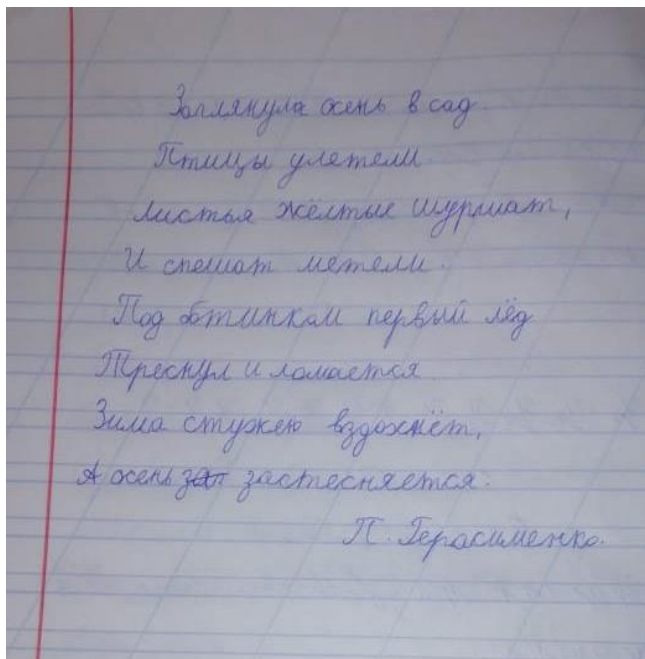 Заглянула осень в сад.
Птицы улетели.
Листья жёлтые шуршат,
И спешат метели.
Под ботинком первый лёд
Треснул и ломается.
Зима стужею вздохнёт,
А осень застесняется.
П. Герасименко.